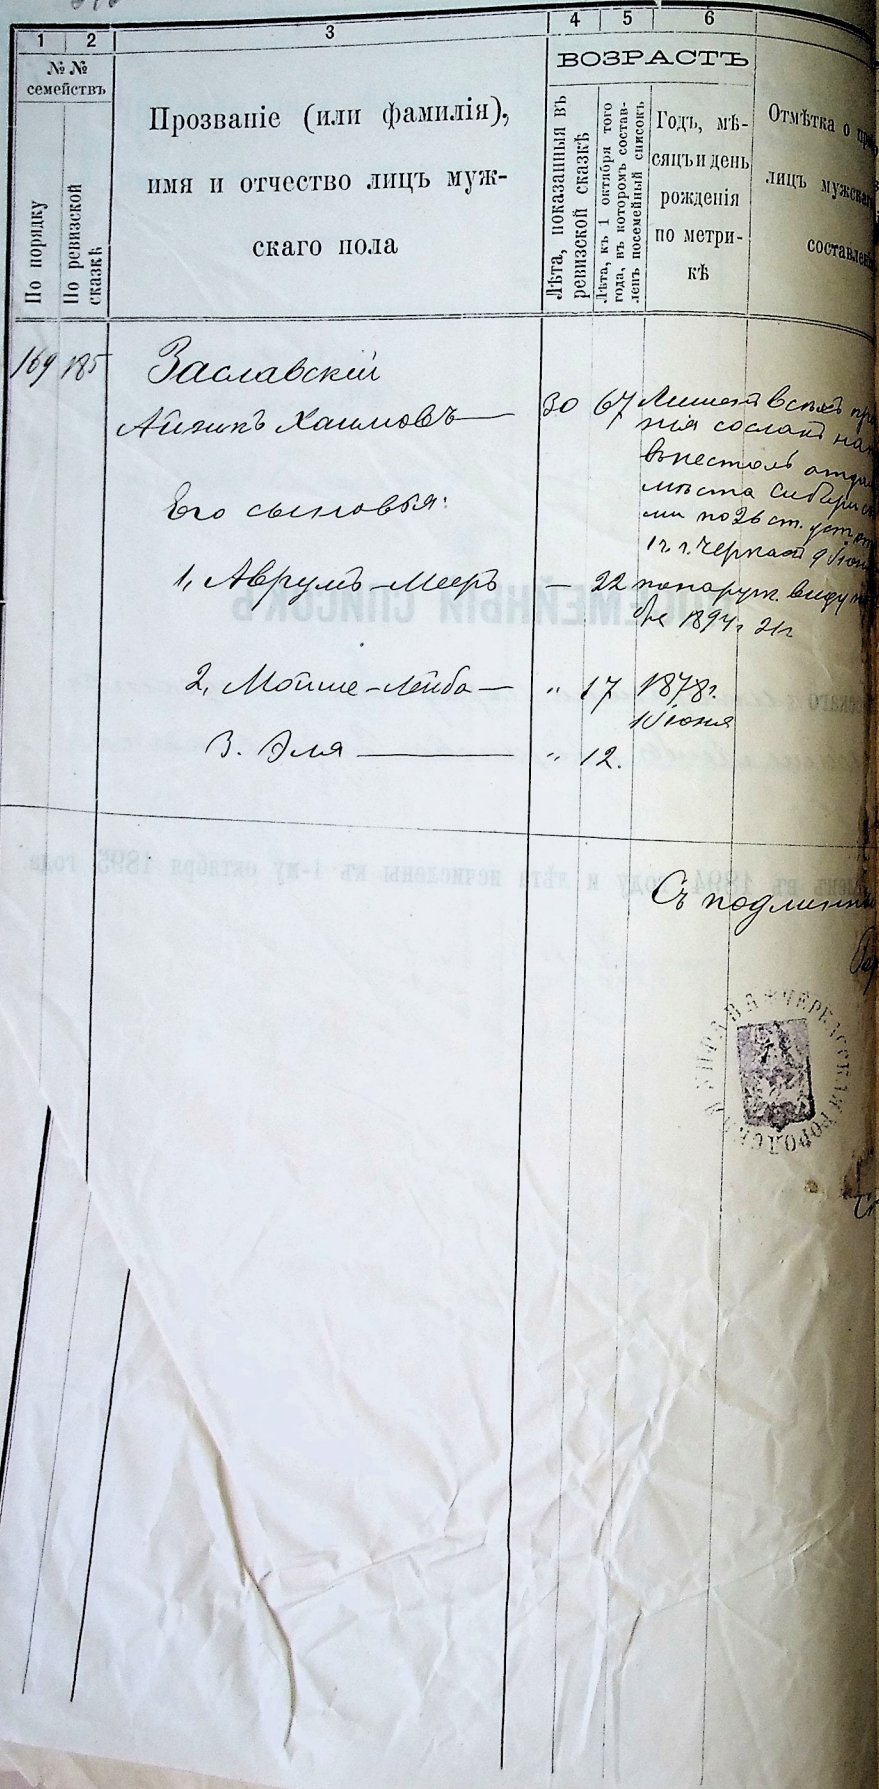 1 2 3 4 5 6
№ № семействъ
По порядку
По ревизской сказкѣ
Прозваніе (или фамилія),
имя и отчество лицъ муж-
скаго пола
ВОЗРАСТЪ
Лѣта, показанныя въ
ревизской сказкѣ
Лѣта, къ 1 октября того
года, въ которомъ состав-
ленъ посемейный списокъ
Годъ, мѣ-
сяцъ и день
рожденія
по метри-
кѣ
Отмѣтка о
лицъ мужскаго
составлені
169 185 Заславскій
Айзикъ Хаимовъ 30 67 Лишенъ всѣхъ
нія сосланъ
отда
мѣста Сибири
ми по 26 ст. уст
г. Черкасъ 9 Іюн
Его сыновья:
1, Аврумъ-Мееръ — 22 по наруж. виду
1894 г. 21 г
2, Мойше-Лейба — „ 17 1878 г.
1 Іюня
3. Эля — „ 12.
Съ подлинны
ЧЕРКАССКАЯ ГОРОДСКАЯ УПРАВА